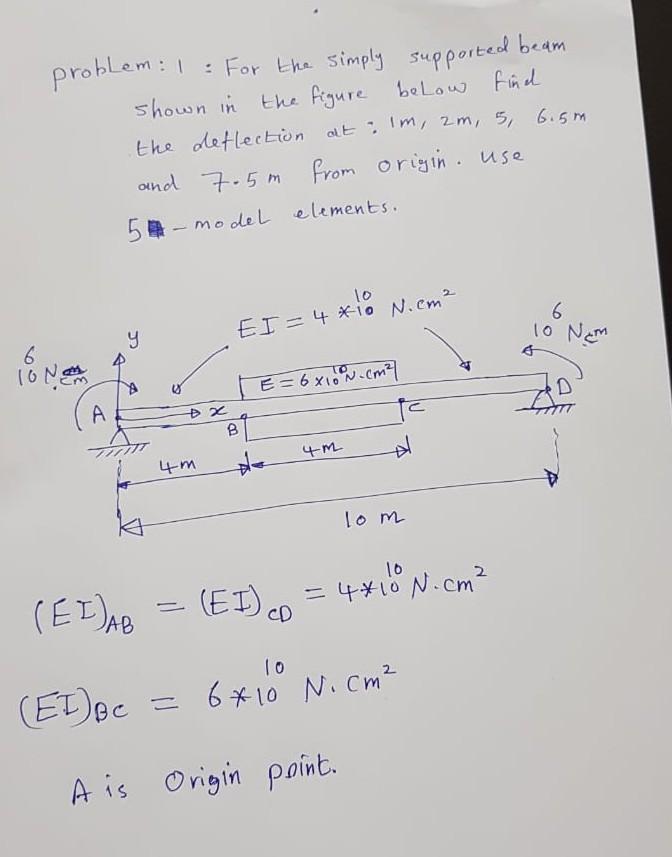 problem: 1 : For the simply supported beam
shown in the figure below find
the deflection at : 1m, 2m, 5, 6.5m
and 7.5 m from origin. use
5 - model elements.
EI = 4 *10^10 N.cm^2
10^6 N.cm
y
E = 6 x10^10 N.cm^2
10^6 Ncm
A
x
B
C
D
4m
4m
10 m
(EI)AB = (EI)CD = 4*10^10 N.cm^2
(EI)BC = 6*10^10 N.cm^2
A is Origin point.